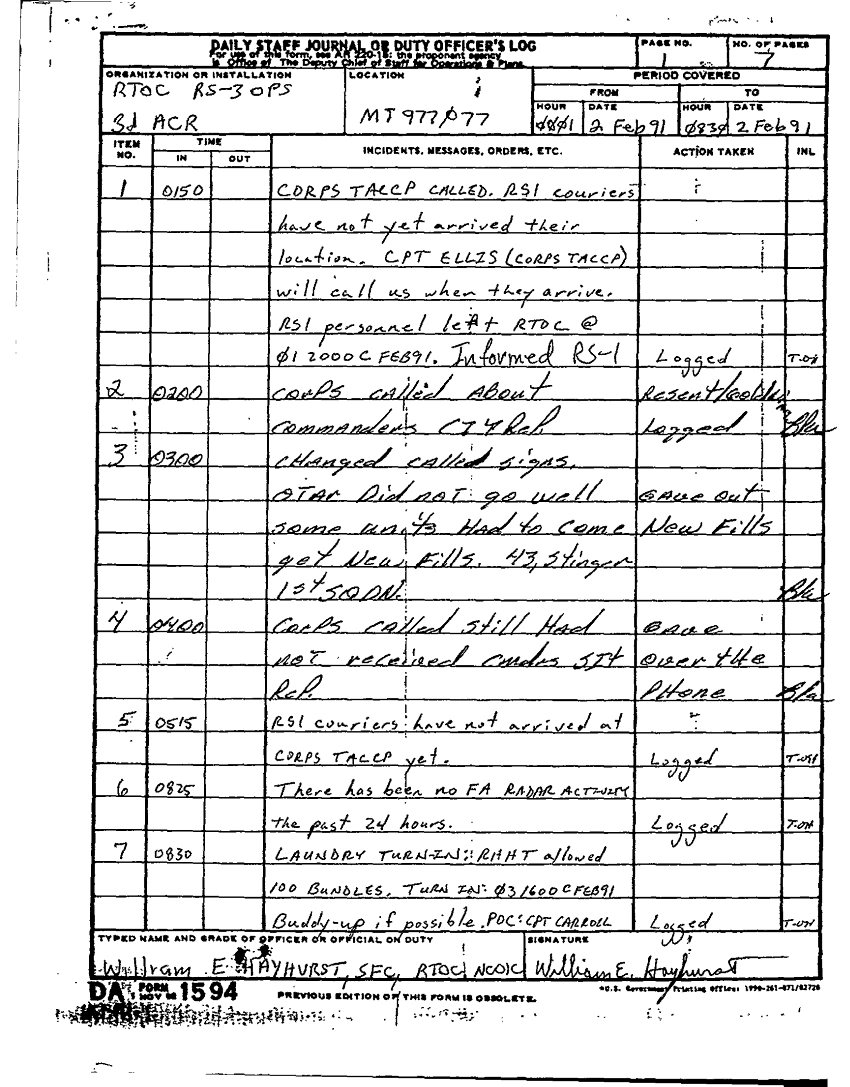 DAILY STAFF JOURNAL OR DUTY OFFICER'S LOG
For use of this form, see AR 220-15; the proponent agency
is Office of The Deputy Chief of Staff for Operations & Plans.
PAGE NO.
1
NO. OF PAGES
7
ORGANIZATION OR INSTALLATION
RTOC RS-3 OPS
3d ACR
LOCATION
MT 977Ø77
PERIOD COVERED
FROM
TO
HOUR
ØØØ1
DATE
2 Feb 91
HOUR
Ø83Ø
DATE
2 Feb 91
ITEM NO.
TIME
IN
OUT
INCIDENTS, MESSAGES, ORDERS, ETC.
ACTION TAKEN
INL
1 0150 CORPS TACCP CALLED. RSI couriers
have not yet arrived their
location. CPT ELLIS (CORPS TACCP)
will call us when they arrive.
RSI personnel left RTOC @
Ø1 2000 C FEB91. Informed RS-1 Logged
2 0200 CORPS CALLED ABOUT Resent
Commanders Rep. Logged
3 0300 CHANGED CALLED SIGNS.
OTAR Did NOT go well GAVE OUT
some units HAD to Come New Fills
get New Fills. 43, Stinger
1st SQDN.
4 0400 CORPS CALLED Still HAD GAVE
NOT received cmdrs SIT over the
Rep. PHONE
5 0515 RSI couriers have not arrived at
CORPS TACCP yet. Logged
6 0825 There has been no FA RADAR ACTIVITY
the past 24 hours. Logged
7 0830 LAUNDRY TURN-IN: RHHT allowed
100 BUNDLES. TURN IN: Ø31600 C FEB91
Buddy-up if possible. POC: CPT CARROLL Logged
TYPED NAME AND GRADE OF OFFICER OR OFFICIAL ON DUTY
William E. HAYHURST, SFC, RTOC NCOIC
SIGNATURE
William E. Hayhurst
DA FORM 1594
1 NOV 62
PREVIOUS EDITION OF THIS FORM IS OBSOLETE.
*U.S. Government Printing Office: 1990-261-871/82720